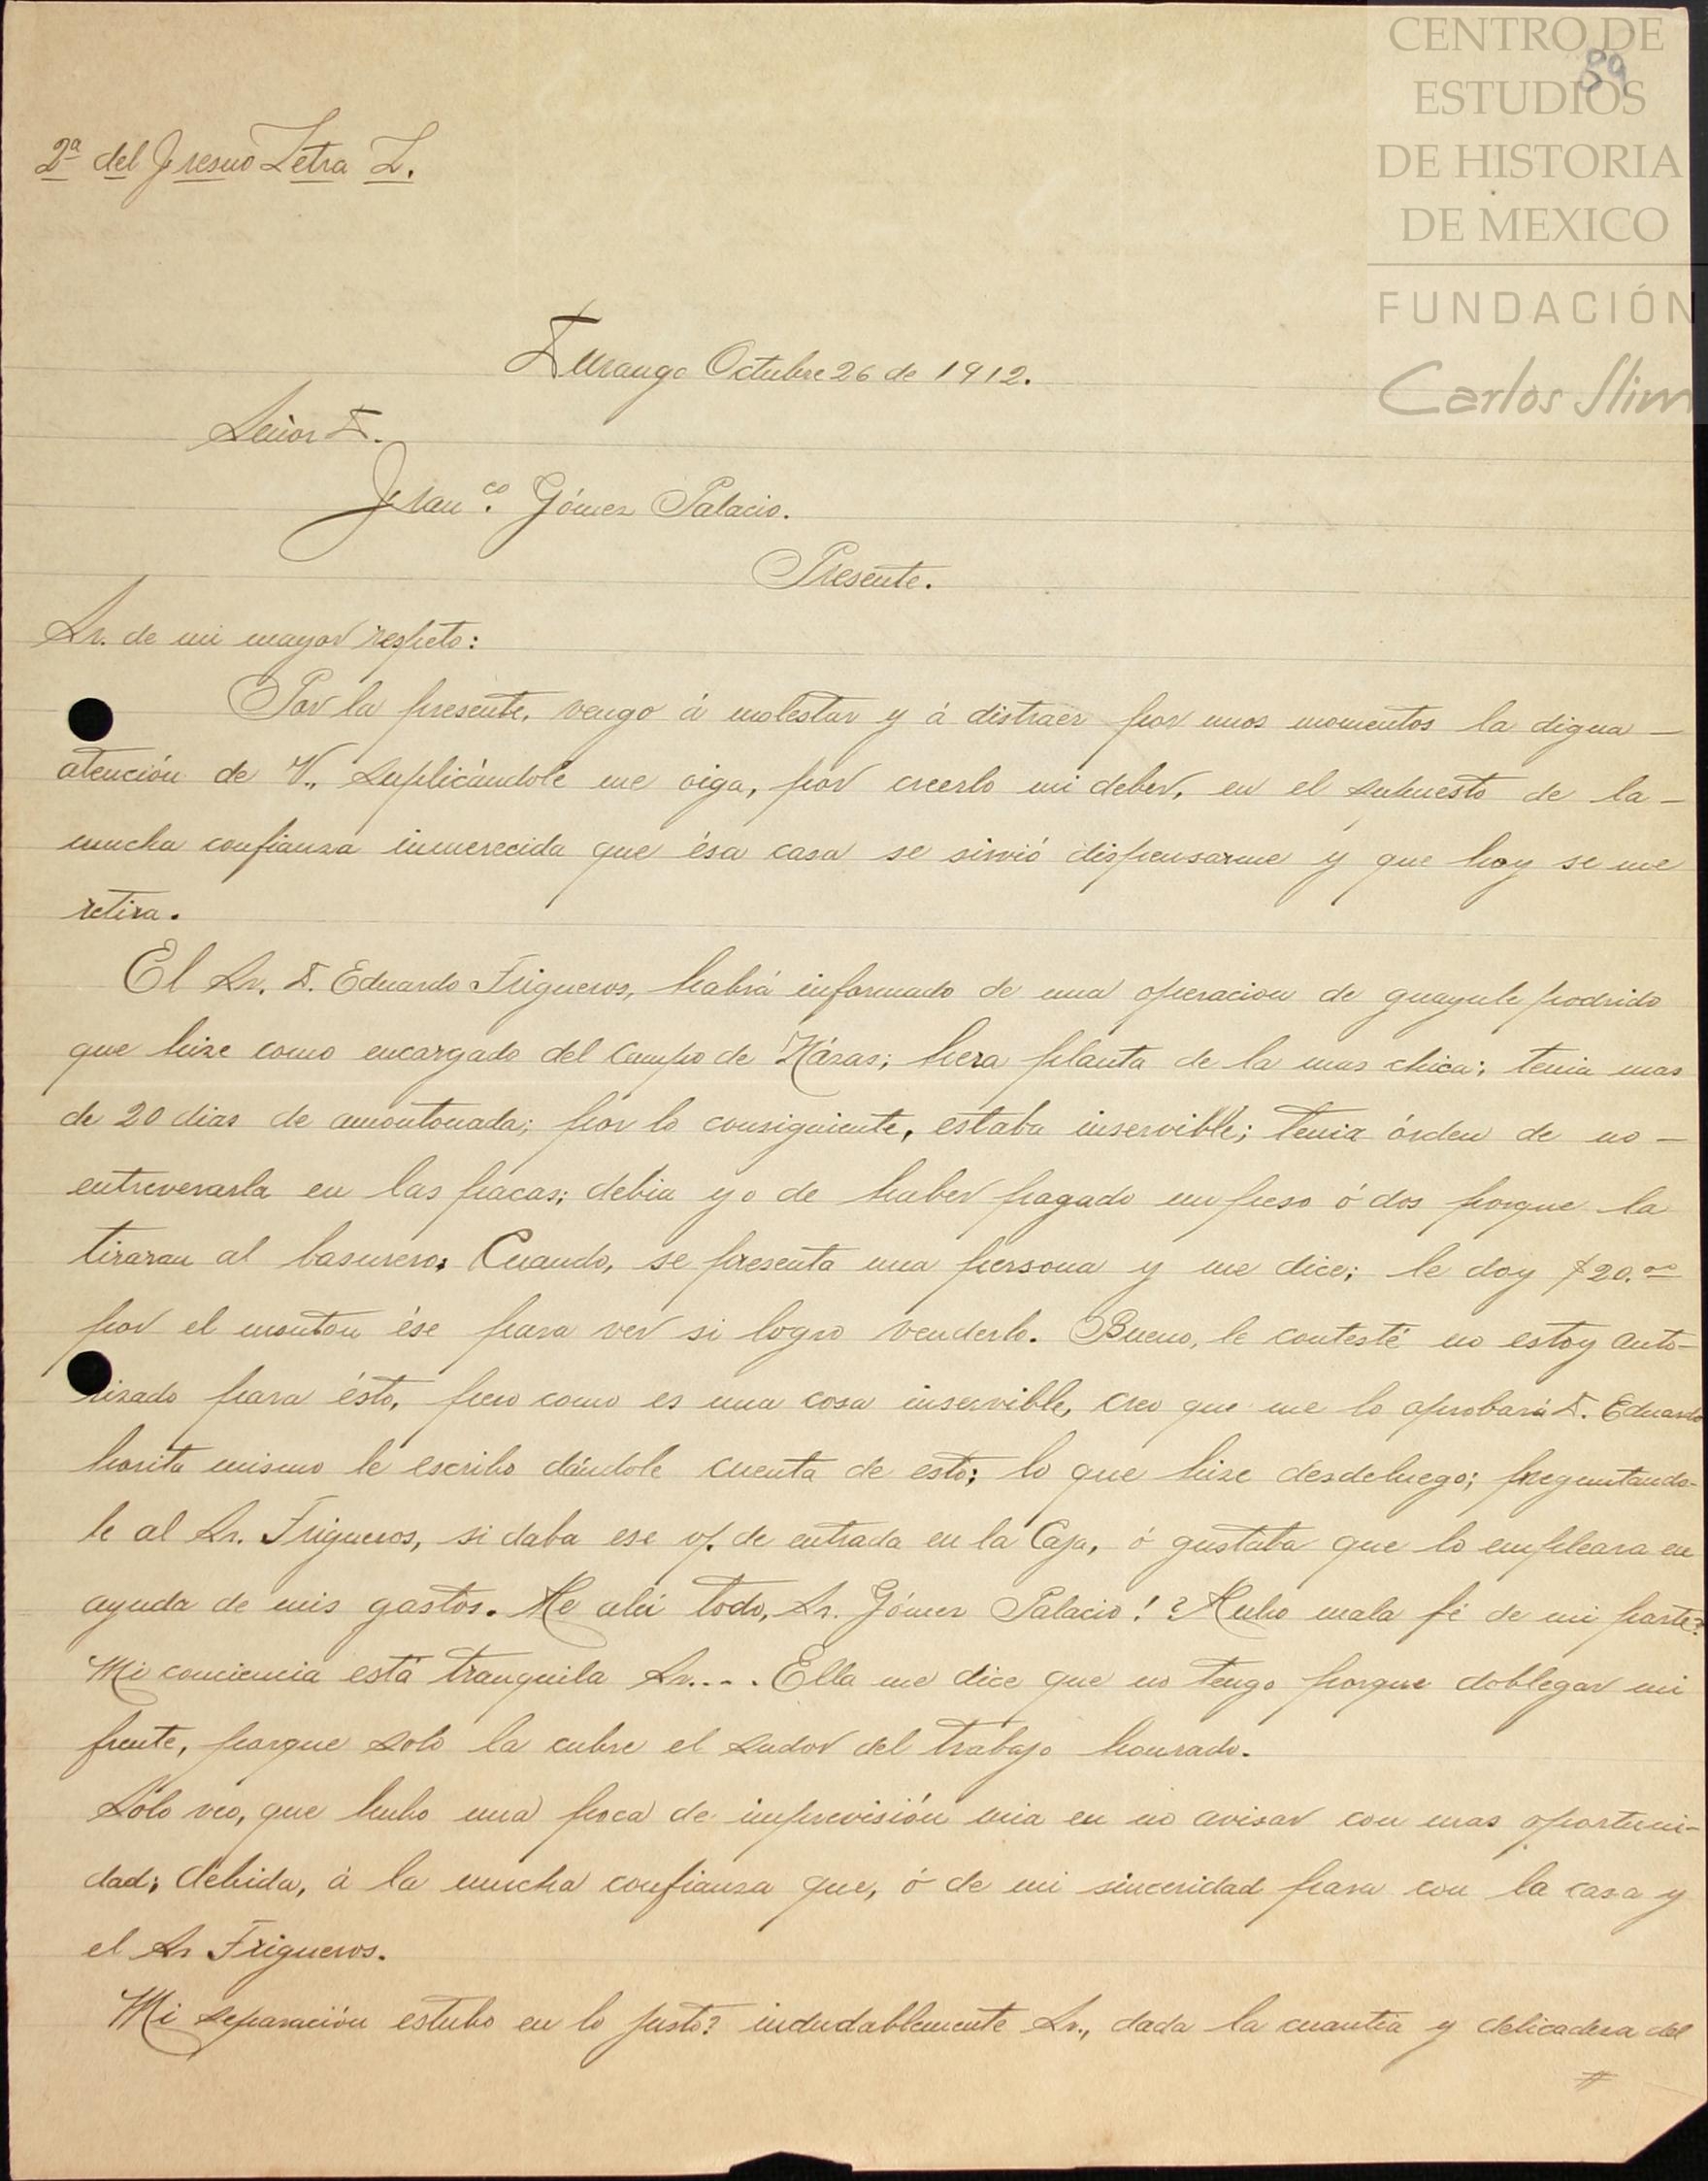 CENTRO DE
ESTUDIOS
DE HISTORIA
DE MEXICO
FUNDACIÓN
Carlos Slim
89
2ª del Fresno Letra L.
Durango Octubre 26 de 1912.
Señor D.
Franco. Gómez Palacio.
Presente.
Sr. de mi mayor respeto:
Por la presente, vengo á molestar y á distraer por unos momentos la digna —
atención de V., suplicándole me oiga, por creerlo mi deber, en el supuesto de la —
mucha confianza inmerecida que ésa casa se sirvió dispensarme y que hoy se me
retira.
El Sr. D. Eduardo Trigueros, habrá informado de una operacion de guayule podrido
que hize como encargado del Campo de Názas; hera planta de la mas chica; tenia mas
de 20 dias de amontonada; por lo consiguiente, estaba inservible; tenia órden de no —
entreverarla en las pacas; debia yo de haber pagado un peso ó dos porque la
tiraran al basurero; Cuando, se presenta una persona y me dice; le doy $20.00
por el monton ése para ver si logro venderlo. Bueno, le contesté no estoy auto-
rizado para ésto, pero como es una cosa inservible, creo que me lo aprobará D. Eduardo
horita mismo le escribo dándole cuenta de esto; lo que hize desdeluego; preguntando-
le al Sr. Trigueros, si daba ese v/. de entrada en la Caja, ó gustaba que lo empleara en
ayuda de mis gastos. He ahí todo, Sr. Gómez Palacio! ?Hubo mala fé de mi parte?
Mi conciencia está tranquila Sr.... Ella me dice que no tengo porque doblegar mi
frente, porque solo la cubre el sudor del trabajo honrado.
Sólo veo, que hubo una poca de imprevisión mia en no avisar con mas oportuni-
dad; debida, á la mucha confianza que, ó de mi sinceridad para con la casa y
el Sr Trigueros.
Mi separación estubo en lo justo? indudablemente Sr., dada la cuantia y delicadesa del
#